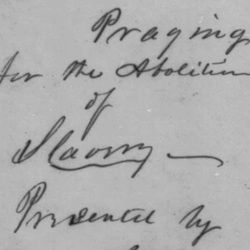 Praying
for the Abolition
of
Slavery —
Presented by